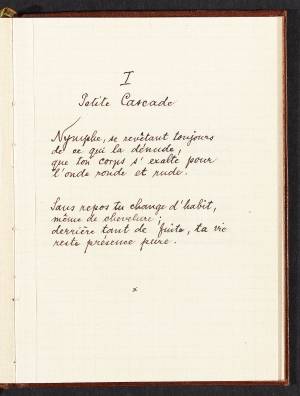 I
Petite Cascade
Nymphe, se revêtant toujours
de ce qui la dénude,
que ton corps s'exalte pour
l'onde ronde et rude.
Sans repos tu change d'habit,
même de chevelure;
derrière tant de fuite, ta vie
reste présence pure.
x